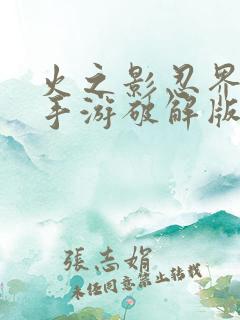 火之影忍界
手游破解版
張志娟
未经同意禁止转载